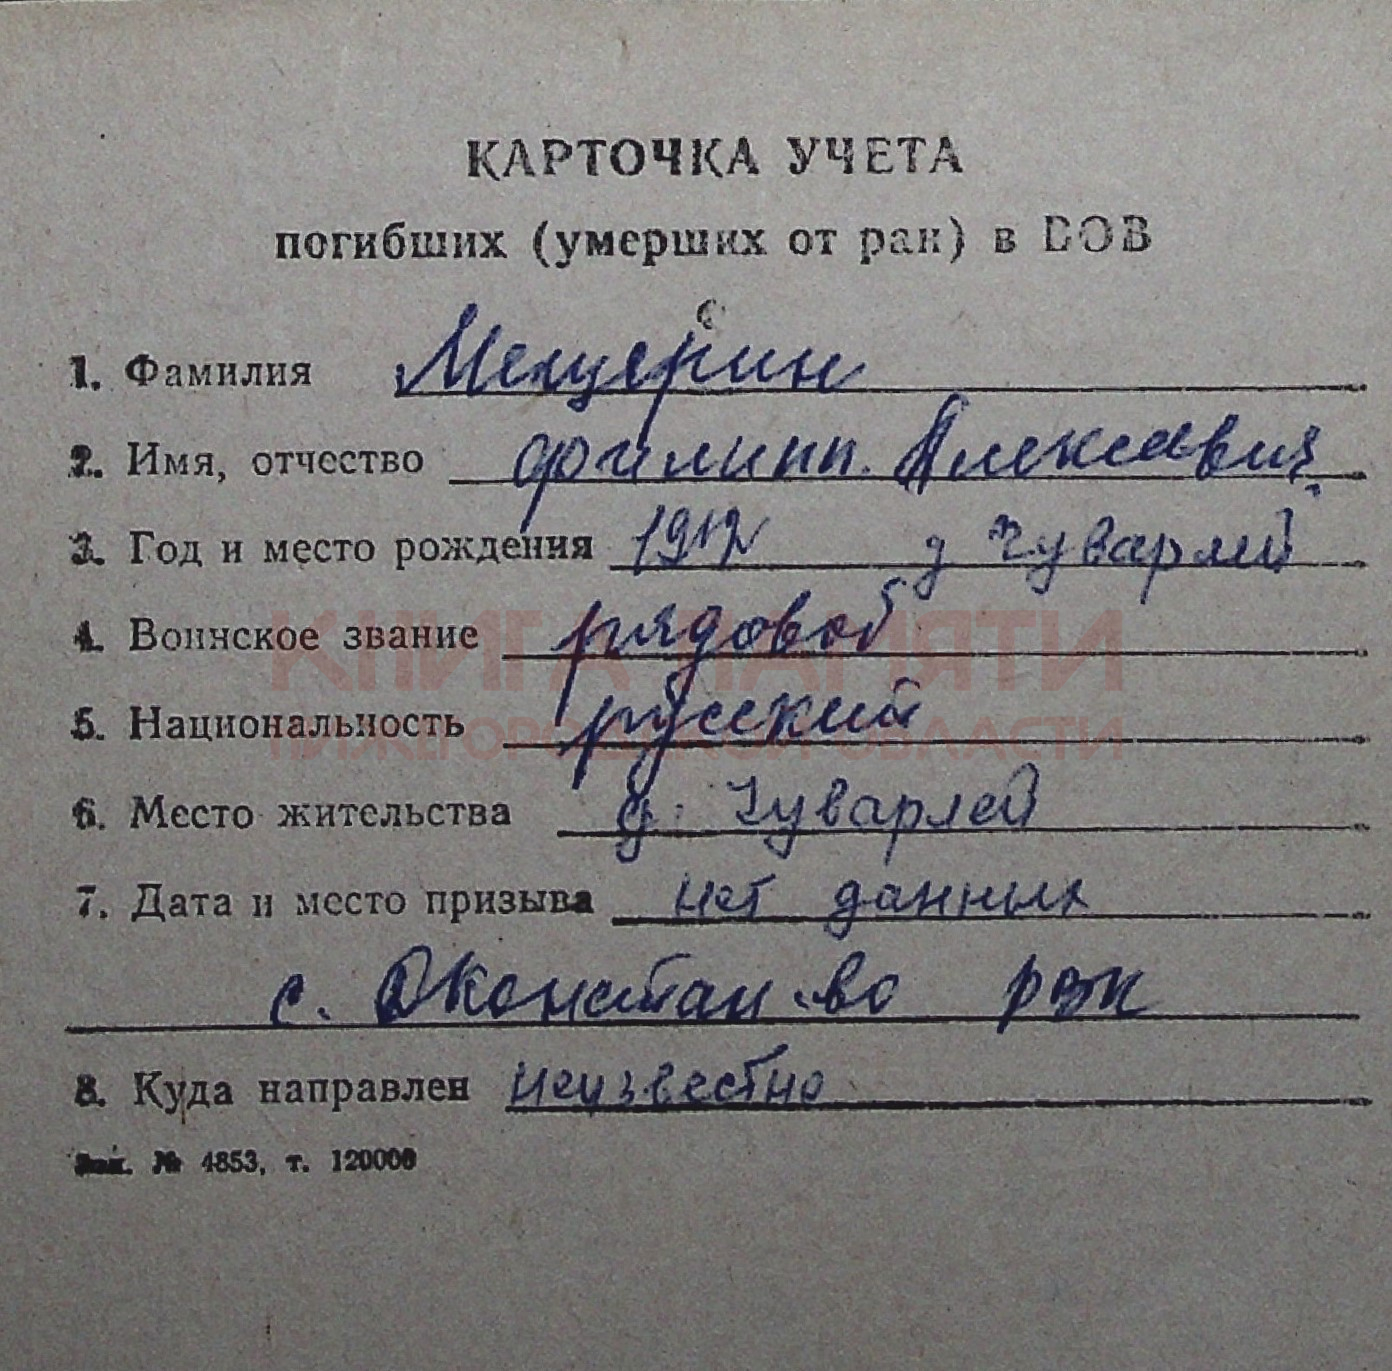 КАРТОЧКА УЧЕТА
погибших (умерших от ран) в ВОВ
1. Фамилия Мещерин
2. Имя, отчество Филипп Алексеевич
3. Год и место рождения 1912 д Чуварлей
4. Воинское звание рядовой
КНИГА ПАМЯТИ
5. Национальность русский
НИЖЕГОРОДСКОЙ ОБЛАСТИ
6. Место жительства д. Чуварлей
7. Дата и место призыва нет данных
с. Дконстан-во рвк
8. Куда направлен неизвестно
Зак. № 4853, т. 120000